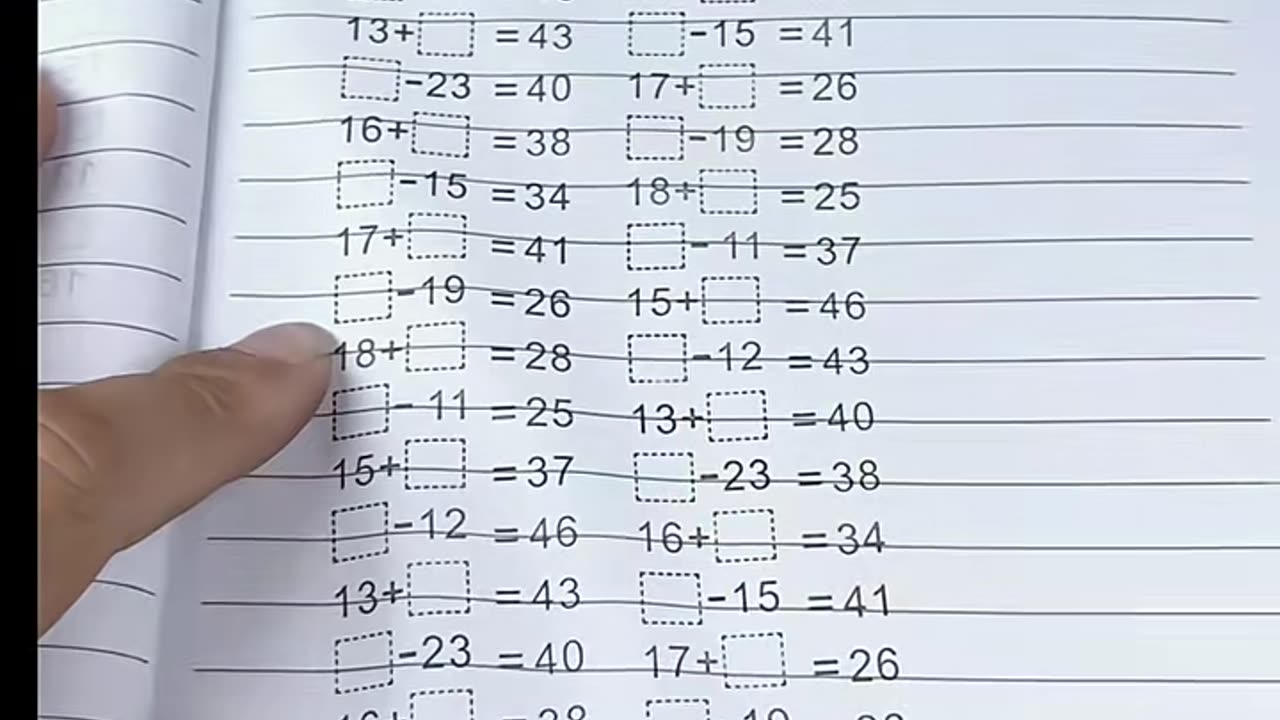 13+□ =43 □-15 =41
□-23 =40 17+□ =26
16+□ =38 □-19 =28
□-15 =34 18+□ =25
17+□ =41 □- 11 =37
□-19 =26 15+□ =46
18+□ =28 □-12 =43
□- 11 =25 13+□ =40
15+□ =37 □-23 =38
□-12 =46 16+□ =34
13+□ =43 □-15 =41
□-23 =40 17+□ =26